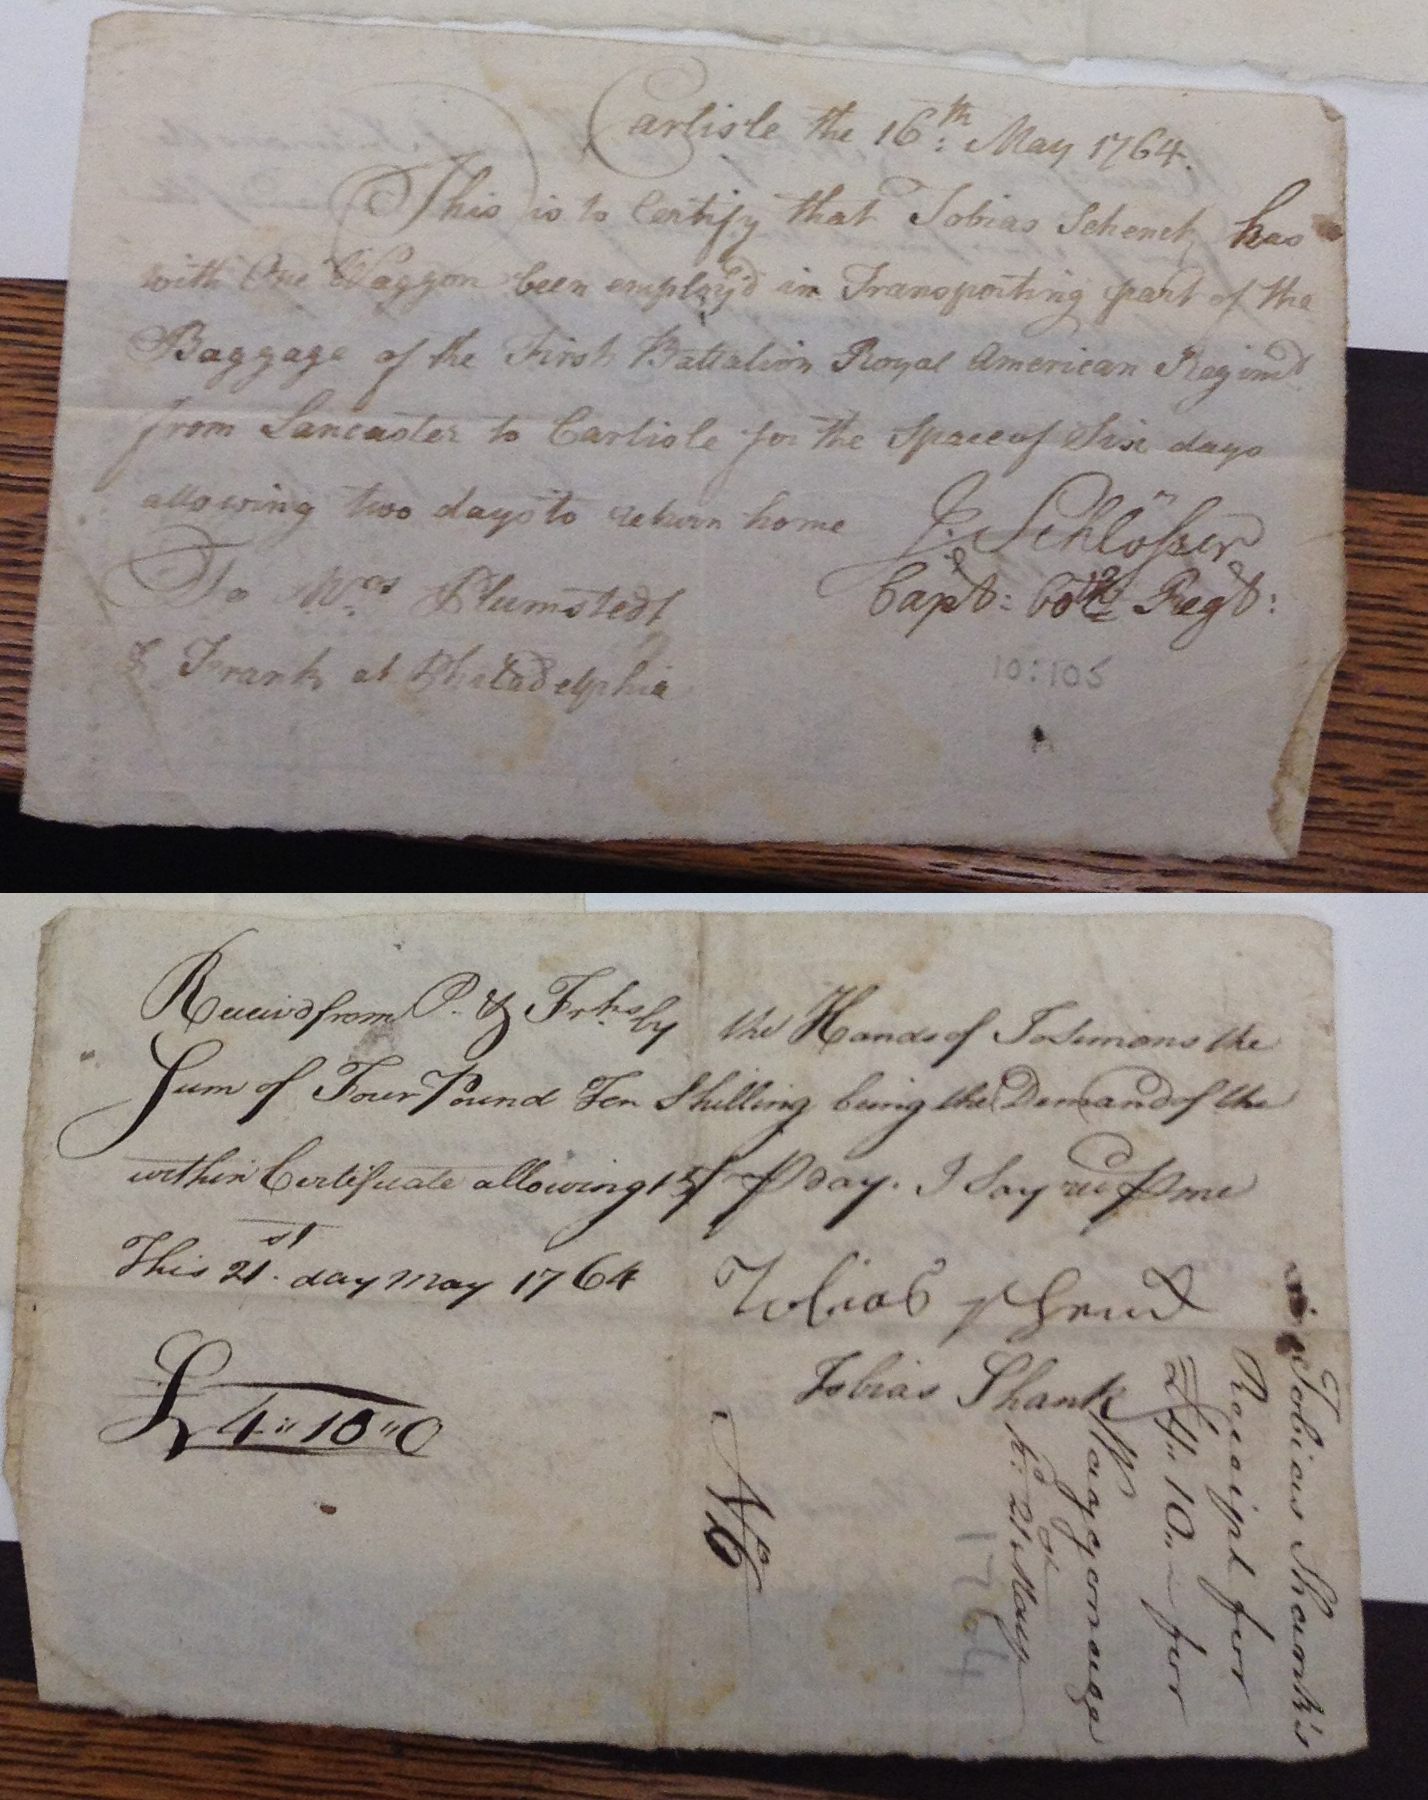 Carlisle the 16th: May 1764.
This is to Certify that Tobias Schenck has
with One Waggon been employ'd in Transporting part of the
Baggage of the First Battalion Royal American Regimt
from Lancaster to Carlisle for the Space of Six days
allowing two days to return home
J: Schlößer
Capt: 60th Regt:
To Mrs Plumstedt
& Frank at Philadelphia
10:105
A
Receivd from P. & Frks by the Hands of Jos Simons the
Sum of Four Pound Ten Shilling being the Demand of the
within Certificate allowing 15/ P day. I Say rec P me
This 21st. day May 1764
Tobias Schenck
Tobias Shank
£4"10"0
No
6
Tobias Shank's
Receipt for
£4"10"- for
Waggonage
pd. 21st May
1764